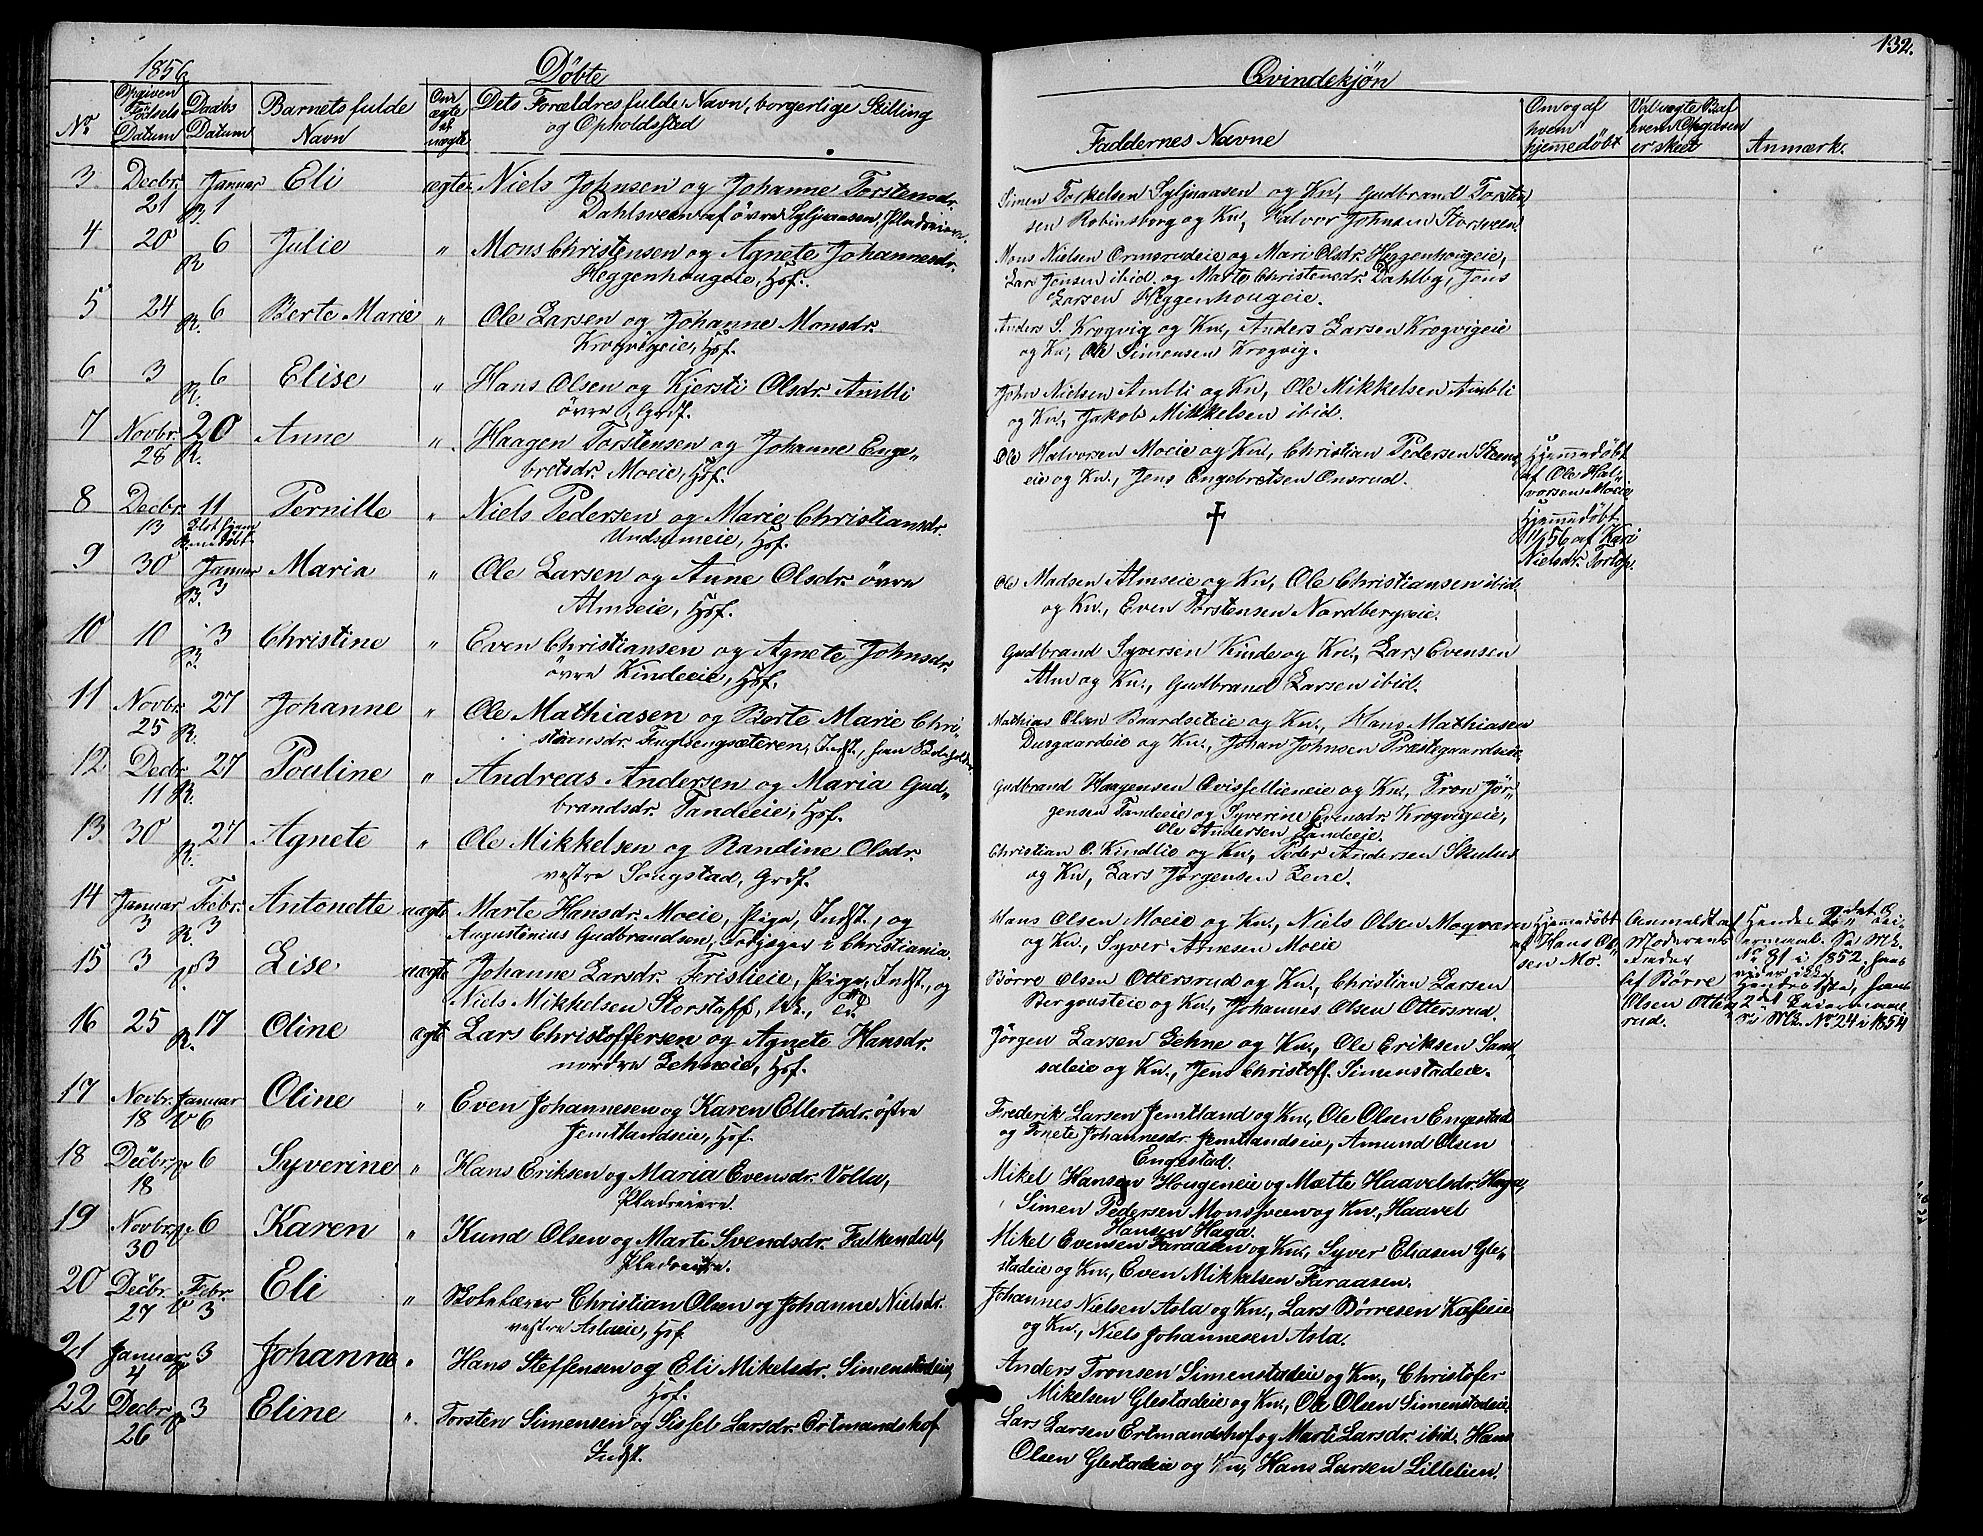 1856
Döbte
Qvindekjön
132.
No
Opgiven Födsels Datum
Daabs Datum
Barnets fulde Navn
Om ægte el. uægte
Dets Forældres fulde Navn, borgerlige Stilling og Opholdssted
Faddernes Navne
Om og af hvem hjemmedöbt
Ved uægte B. af hvem Opgaven er skeet
Anmærk.
3 Decbr. 21 Januar 1 Eli ægte Niels Johnsen og Johanne Torstensdr.
Dahlsveen af övre Syljuaasen
Simen Torkelsen Syljuaasen og Kn., Gudbrand Torsten
sen Robinsborg og Kn., Halvor Johnsen Storsveen
4 20 R 6 Julie " Mons Christensen og Agnete Johannesdr.
Heggenhougeie, Hof.
Mons Nielsen Ormsrudeie og Mari Olsdr. Heggenhougeie,
Lars Jensen ibid. og Marte Christensdr. Dahlby, Jens
Larsen Heggenhougeie.
5 24 R. 6 Berte Marie " Ole Larsen og Johanne Monsdr.
Krogvigeie, Hsf.
Anders S. Krogvig og Kn., Anders Larsen Krogvigeie
og Kn., Ole Simensen Krogvig.
6 3 R. 6 Elise " Hans Olsen og Kjersti Olsdr. Ambli
övre, Grdf.
John Nielsen Ambli og Kn., Ole Mikkelsen Ambli
og Kn., Jakob Mikkelsen ibid.
7 Novbr. 28 R. 20 Anne " Haagen Torstensen og Johanne Enge„
bretsdr. Moeie, Hsf.
Ole Halvorsen Moeie og Kn., Christian Pedersen Steens
eie og Kn., Jens Engebretsen Onsrud.
Hjemmedöbt
af Ole Hal„
vorsen Moeie
8 Decbr. 13 11 Pernille " Niels Pedersen og Marie Christiansdr.
Undsumeie, Hsf.
†
Hjemmedöbt
56 af Kari
Nielsdr. Tortop.
9 30 Januar B. 3 Maria " Ole Larsen og Anne Olsdr. övre
Almseie, Hsf.
Ole Madsen Almseie og Kn., Ole Christiansen ibid.
og Kn., Even Torstensen Nordbergseie.
10 10 B. 3 Christine " Even Christiansen og Agnete Johnsdr.
övre Kindeeie, Hsf.
Gudbrand Syversen Kinde og Kn., Lars Evensen
Alm og Kn., Gudbrand Larsen ibid.
11 Novbr. 25 R. 27 Johanne " Ole Mathiasen og Berte Marie Chri„
stiansdr. Fuglsengsæteren, Indst.,
Mathias Olsen Baardseteie og Kn., Hans Mathiasen
Dusgaardeie og Kn., Johan Johnsen Præstegaardseie.
12 Decbr. 11 R. 27 Pouline " Andreas Andersen og Maria Gud„
brandsdr. Tandeeie, Hsf.
Gudbrand Haagensen Qvisfellieneie og Kn., Tron Jör„
gensen Tandeeie og Syverine Evensdr. Krogvigeie,
Ole Andersen Tandeeie.
13 30 R. 27 Agnete " Ole Mikkelsen og Randine Olsdr.
vestre Songstad, Grdf.
Christian O. Kindlie og Kn., Peder Andersen Skulus
og Kn., Lars Jörgensen Lene.
14 Januar 3 Febr. R. 3 Antonette uægte Marte Hansdr. Moeie, Pige, Indst., og
Augustinius Gudbrandsen, i Christiania.
Hans Olsen Moeie og Kn., Niels Olsen Moqvarn
og Kn., Syver Arnesen Moeie
Hjemmedöbt
af Hans Ol„
sen Mo.
Anmeldt af
Moderens
Fader
15 3 3 Lise uægte Johanne Larsdr. Feristieie, Pige, Indst., og
Niels Mikkelsen Storstaff,
Börre Olsen Ottersrud og Kn., Christian Larsen
Bergousteie og Kn., Johannes Olsen Ottersrud.
af Börre
Olsen Otters
rud.
No 31 i 1852.
No 24 i 1854
16 25 R. 17 Oline ægte Lars Christoffersen og Agnete Hansdr.
nordre Lehneie, Hsf.
Jörgen Larsen Lehne og Kn., Ole Eriksen Sand
saleie og Kn., Jens Christoff. Simenstadeie.
17 Novbr. 18 Januar 6 Oline " Even Johannesen og Karen Ellertsdr. östre
Jemtlandseie, Hsf.
Frederik Larsen Jemtland og Kn., Ole Olsen Engestad
og Tonete Johannesdr. Jemtlandseie, Amund Olsen
Engestad.
18 Decbr. 18 6 Syverine " Hans Eriksen og Maria Evensdr. Volla,
Pladseiere.
Mikel Hansen Hougeneie og Mætte Haavelsdr. Haga,
Simen Pedersen Monssveen og Kn., Haavel
Hansen Haga.
19 Novbr. 30 6 Karen " Knud Olsen og Marte Svendsdr. Falkendal,
Pladseiere.
Mikel Evensen Faraasen og Kn., Syver Eliasen Gle„
stadeie og Kn., Even Mikkelsen Faraasen.
20 Decbr. 27 Febr. 3 Eli " Skolelærer Christian Olsen og Johanne Nielsdr.
vestre Aslaeie, Hsf
Johannes Nielsen Asla og Kn., Lars Börresen Kaseie
og Kn., Niels Johannesen Asla.
21 Januar 4 3 Johanne " Hans Steffensen og Eli Mikelsdr. Simenstadeie,
Hsf.
Anders Tronsen Simenstadeie og Kn., Christofer
Mikelsen Glestadeie og Kn., Ole Olsen Simenstadeie.
22 Decbr. 26 3 Eline " Torsten Simensen og Sissel Larsdr. Ertmandshof
Indst.
Lars Larsen Ertmandshof og Marte Larsdr. ibid. Hans
Olsen Glestadeie og Kn., Hans Larsen Lillelien.